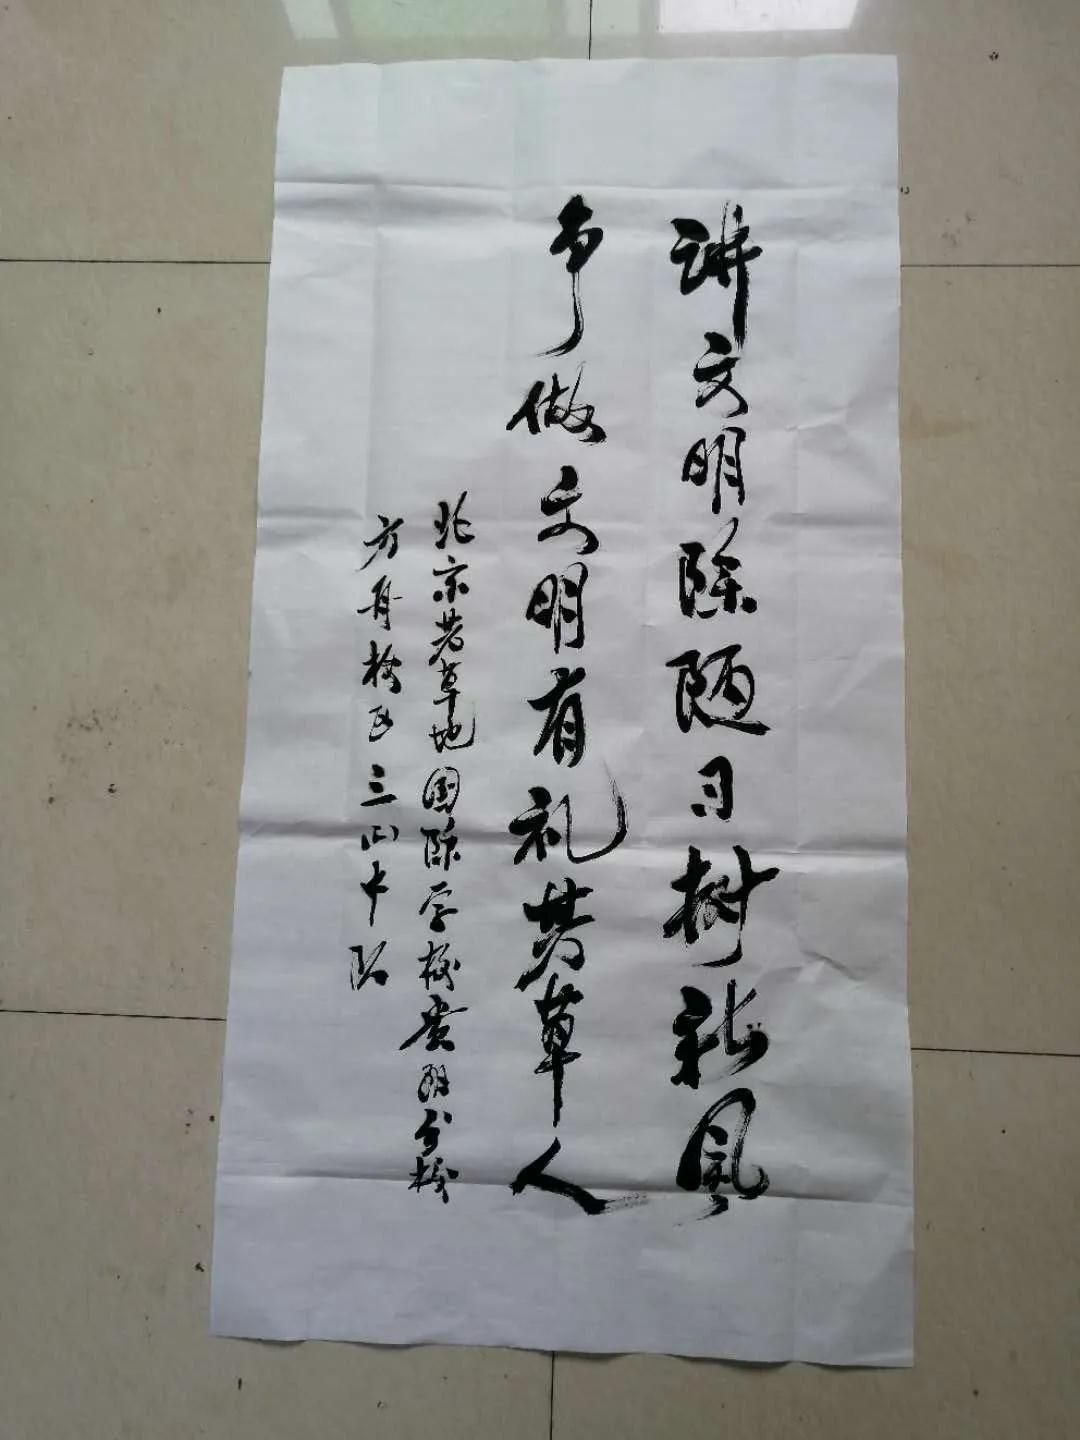 讲文明除陋习树新风
争做文明有礼芳草人
北京芳草地国际学校贵阳分校
方舟校区三(4)中队